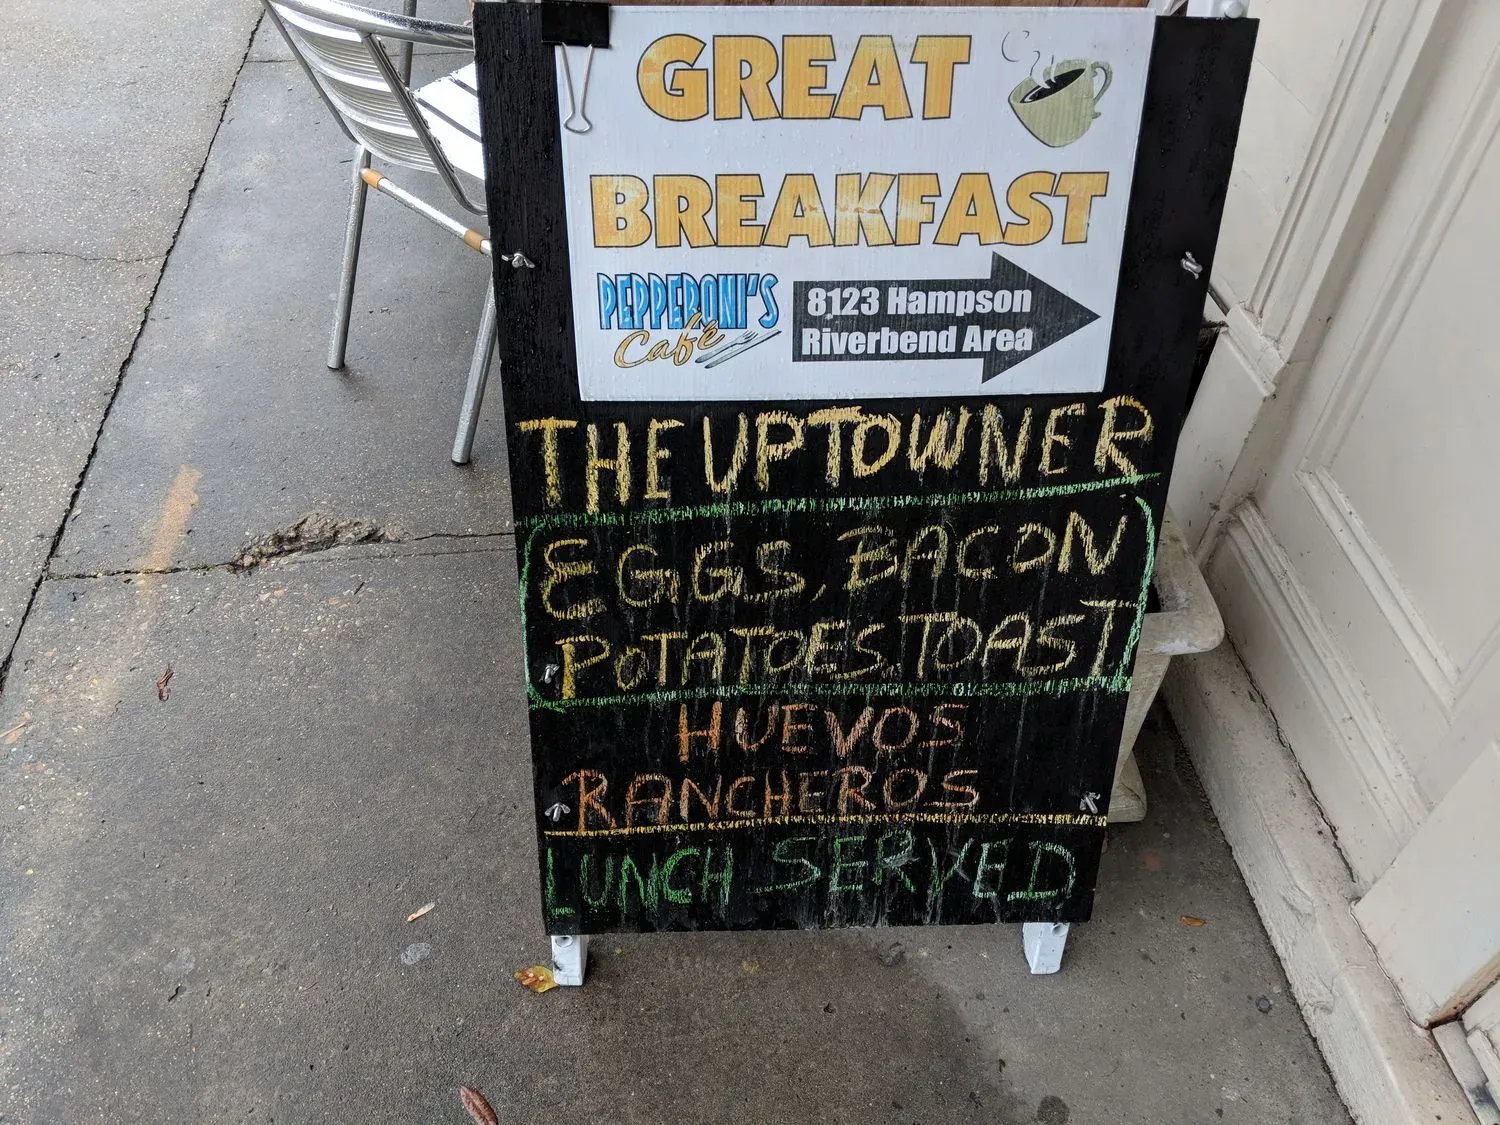 GREAT
BREAKFAST
PEPPERONI'S
Café
8123 Hampson
Riverbend Area
THE UPTOWNER
EGGS, BACON
POTATOES. TOAST
HUEVOS
RANCHEROS
LUNCH SERVED